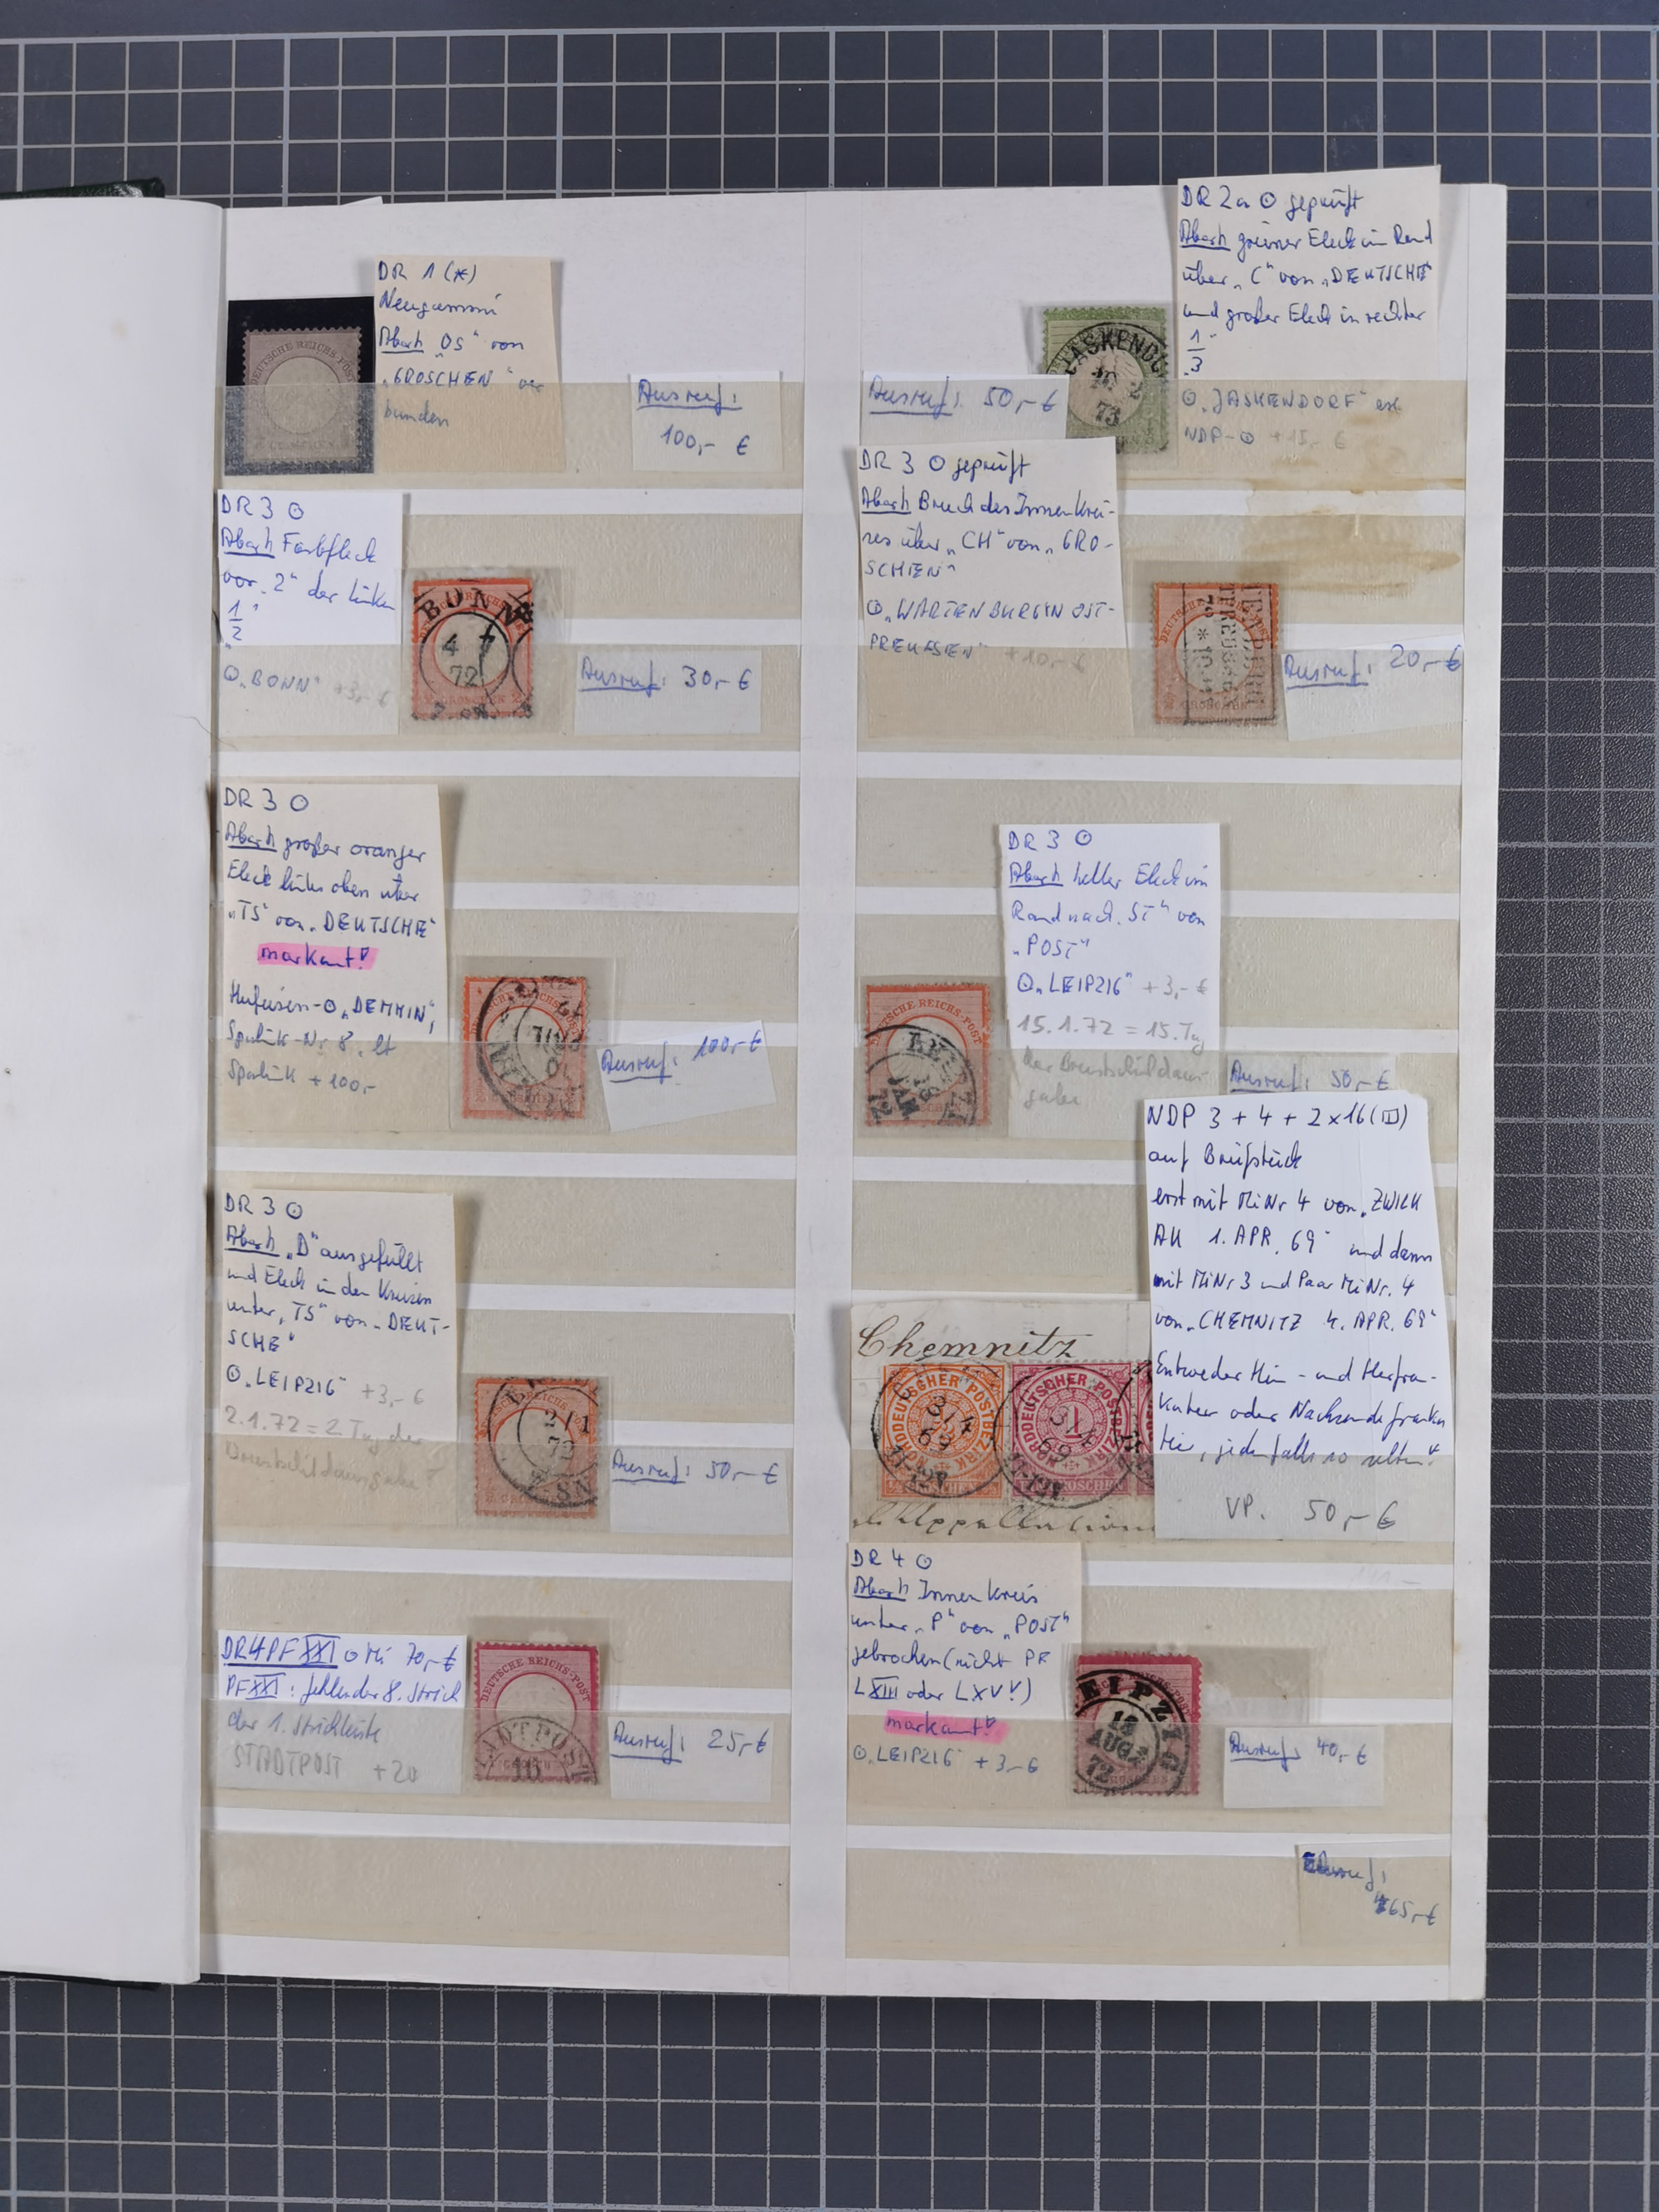 DR 1 (*)
Neugummi
Abart "OS" von
"GROSCHEN" ver
bunden
Ausruf:
100,- €
DEUTSCHE REICHS-POST
DR 2a ⊙ geprüft
Abart grüner Fleck im Rand
über "C" von "DEUTSCHE"
und großer Fleck in rechter
"1/3"
⊙ "JASKENDORF" erst
NDP-⊙ +15,- €
Ausruf: 50,- €
JASKENDO
73
DR 3 ⊙
Abart Farbfleck
vor "2" der linken
"1/2"
⊙ "BONN" +3,- €
BONN
4 7
72
Ausruf: 30,- €
DR 3 ⊙ geprüft
Abart Bruch des Innenkrei-
ses über "CH" von "GRO-
SCHEN"
⊙ "WARTENBURG IN OST-
PREUSSEN" +10,- €
Ausruf: 20,- €
DR 3 ⊙
Abart großer oranger
Fleck links oben über
"TS" von "DEUTSCHE"
markant!
Hufeisen-⊙ "DEMMIN",
Spalink-Nr 8, lt
Spalink +100,-
Ausruf: 100,- €
DR 3 ⊙
Abart heller Fleck im
Rand nach "ST" von
"POST"
⊙ "LEIPZIG" +3,- €
15.1.72 = 15. Tag
der Brustschildaus-
gabe
DEUTSCHE REICHS-POST
Ausruf: 50,- €
DR 3 ⊙
Abart "D" ausgefüllt
und Fleck in den Kreisen
unter "TS" von "DEUT-
SCHE"
⊙ "LEIPZIG" +3,- €
2.1.72 = 2. Tag der
Brustschildausgabe!
2/1
72
Ausruf: 50,- €
NDP 3 + 4 + 2x16 (II)
auf Briefstück
erst mit MiNr 4 von "ZWICK
AU 1. APR. 69" und dann
mit MiNr 3 und Paar MiNr. 4
von "CHEMNITZ 4. APR. 69"
Entweder Hin- und Herfran-
katur oder Nachsendefranka
tur, jedenfalls so selten!
VP. 50,- €
Chemnitz
NORDDEUTSCHER POSTBEZIRK
NORDDEUTSCHER POSTBEZIRK
1
GROSCHEN
DR4PFXXI ⊙ Mi 70,- €
PFXXI: fehlender 8. Strich
der 1. Strichleiste
STADTPOST +20
DEUTSCHE REICHS-POST
Ausruf: 25,- €
DR 4 ⊙
Abart Innenkreis
unter "P" von "POST"
gebrochen (nicht PF
LXIII oder LXV!)
markant!
⊙ "LEIPZIG" +3,- €
LEIPZIG
18
AUG
72
Ausruf: 40,- €
Ausruf:
465,- €